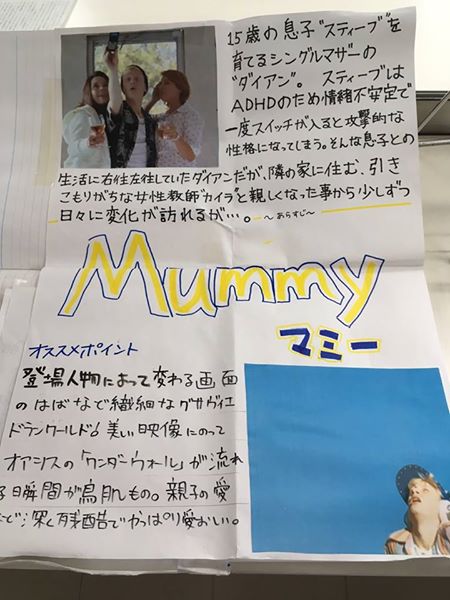 15歳の息子"スティーブ"を
育てるシングルマザーの
"ダイアン"。 スティーブは
ADHDのため情緒不安定で
一度スイッチが入ると攻撃的な
性格になってしまう。そんな息子との
生活に右往左往していたダイアンだが、隣の家に住む、引き
こもりがちな女性教師"カイラ"と親しくなった事から少しずつ
日々に変化が訪れるが…。 〜あらすじ〜
Mummy
マミー
オススメポイント
登場人物によって変わる画面
のはばなど繊細なグザヴィエ
ドランワールド♪ 美しい映像にのって
オアシスの「ワンダーウォール」が流れ
る瞬間が鳥肌もの。親子の愛
深く残酷でやっぱり愛おしい。